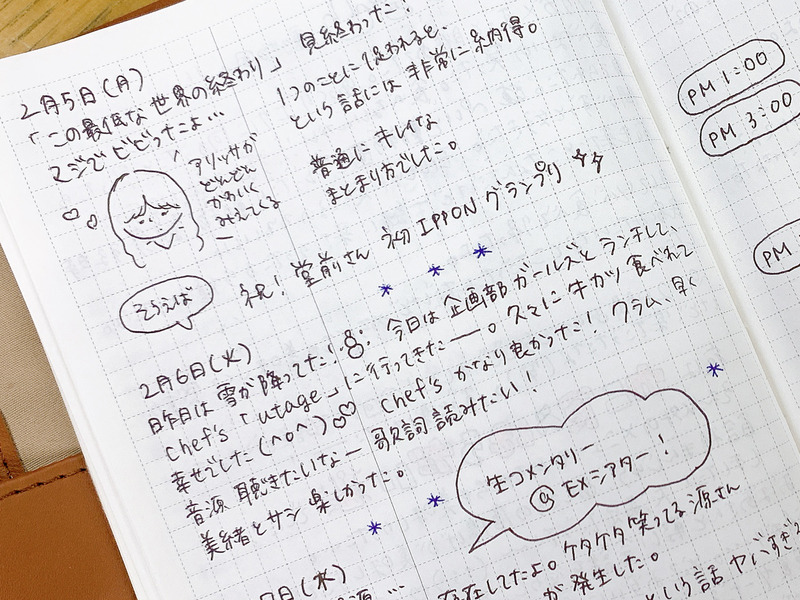 2月5日(月)
「この最低な世界の終わり」見終わった!
マジでビビったよ…
1つのことに従われると、
という話には非常に納得。
普通にキレイな
まとまり方でした。
アリッサが
どんどん
かわいく
みえてくる
そういえば
祝!堂前さん初IPPONグランプリ
2月6日(火)
昨日は雪が降ってた! 今日は企画部ガールズとランチして、
chef's「utage」に行ってきたー。久々に牛カツ食べれて
幸せでした(^o^) chef'sがなり良かった! クラム、早く
音源聴きたいなー歌詞読みたい!
美緒とサシ楽しかった。
生コメンタリー
@EXシアター!
7日(水)
存在してたよ。ケタケタ笑ってる源さん
が発生した。
という話ヤバすぎ
PM 1:00
PM 3:00
PM